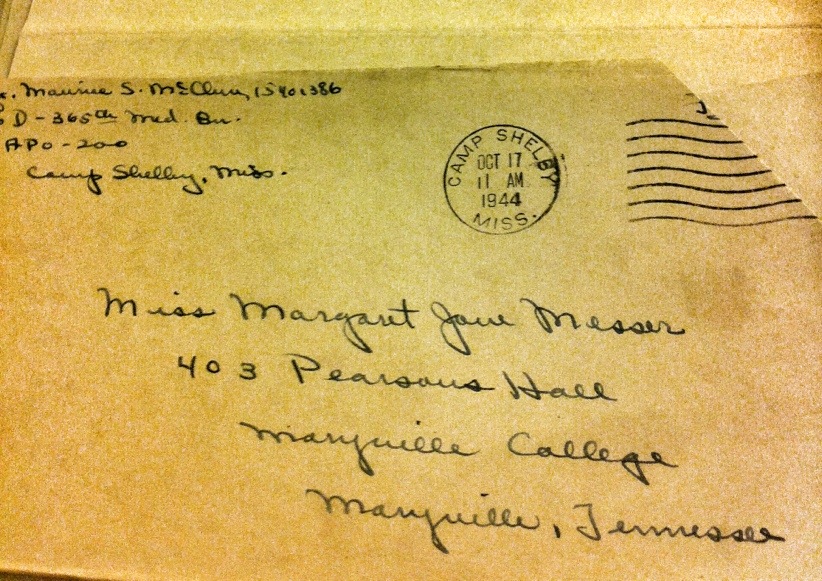 Maurice S. McClure, 15401386
D - 365th Med. Bn.
APO - 200
Camp Shelby, Miss.
CAMP SHELBY
OCT 17
11 AM
1944
MISS.
Miss Margaret Jane Messer
403 Pearsons Hall
Maryville College
Maryville, Tennessee